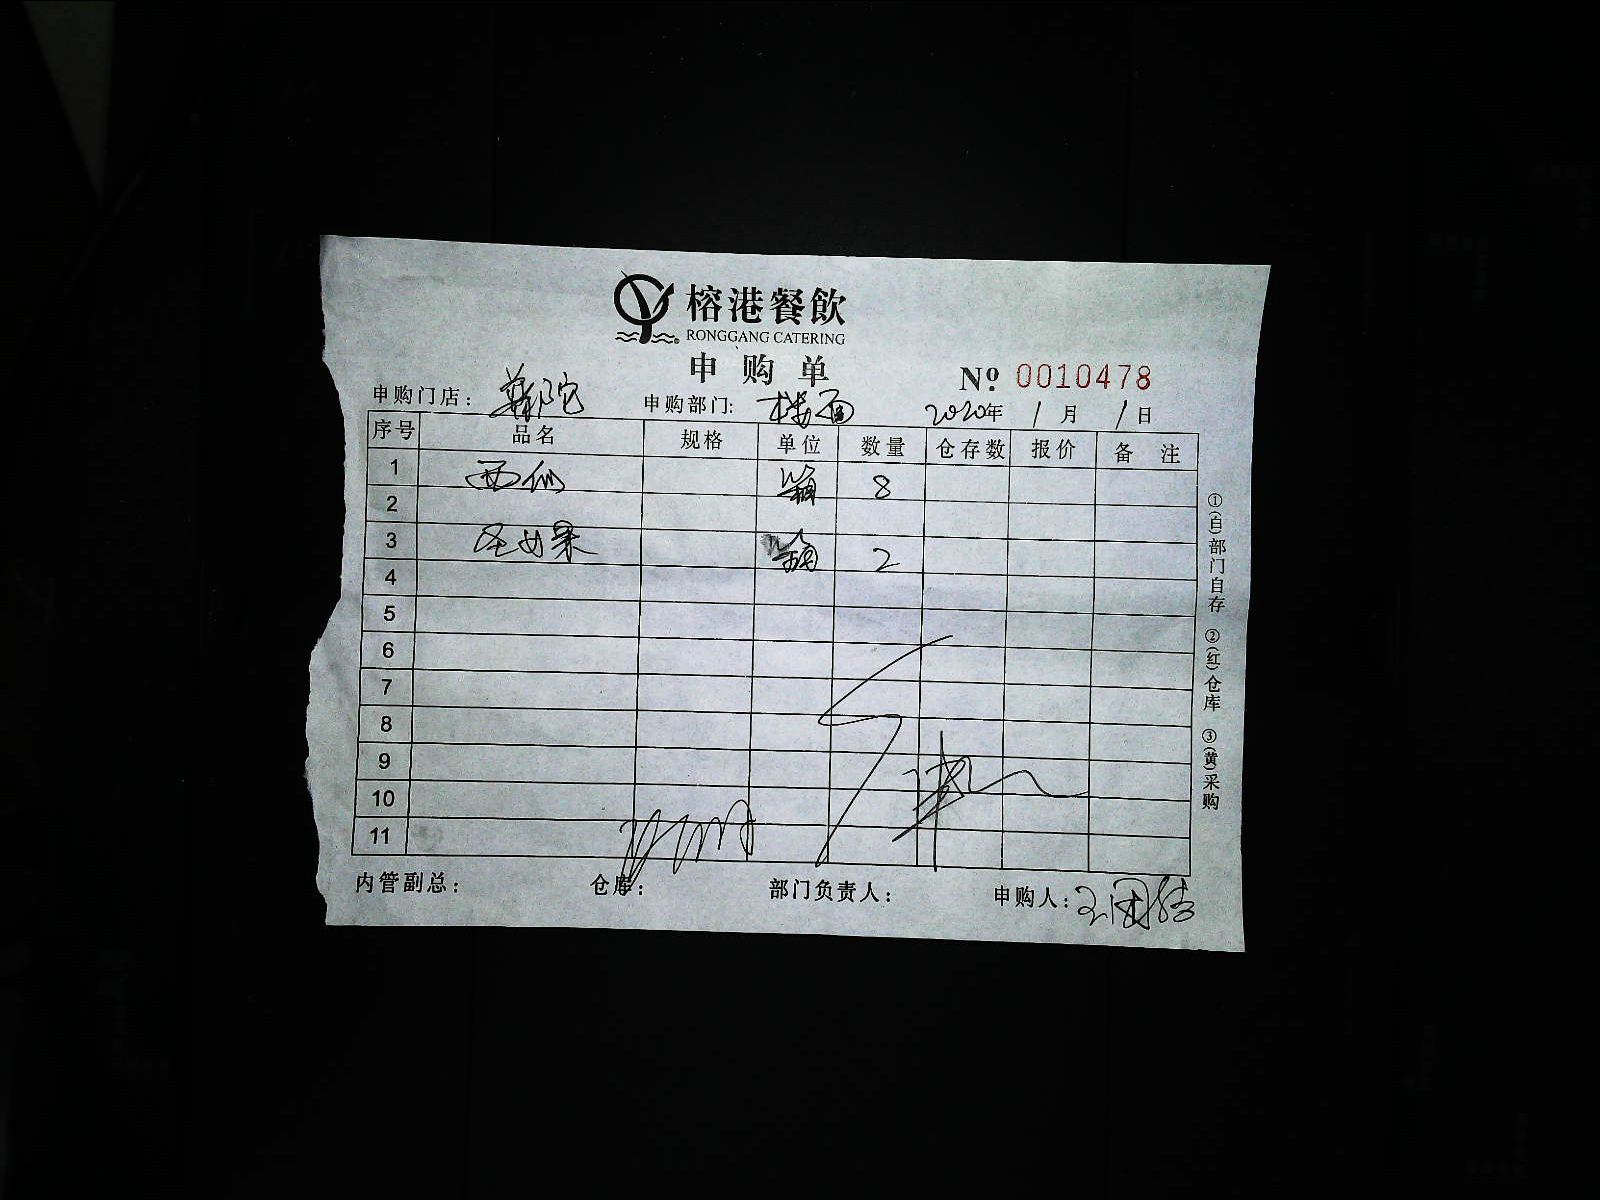 榕港餐飲
RONGGANG CATERING
申购单
№ 0010478
申购门店： 申购部门: 楼面 2020年 1月 1日
序号 品名 规格 单位 数量 仓存数 报价 备 注
1 西仙 箱 8
2
3 圣女果 箱 2
4
5
6
7
8
9
10
11
内管副总： 仓库： 部门负责人： 申购人：
①(白)部门自存 ②(红)仓库 ③(黄)采购